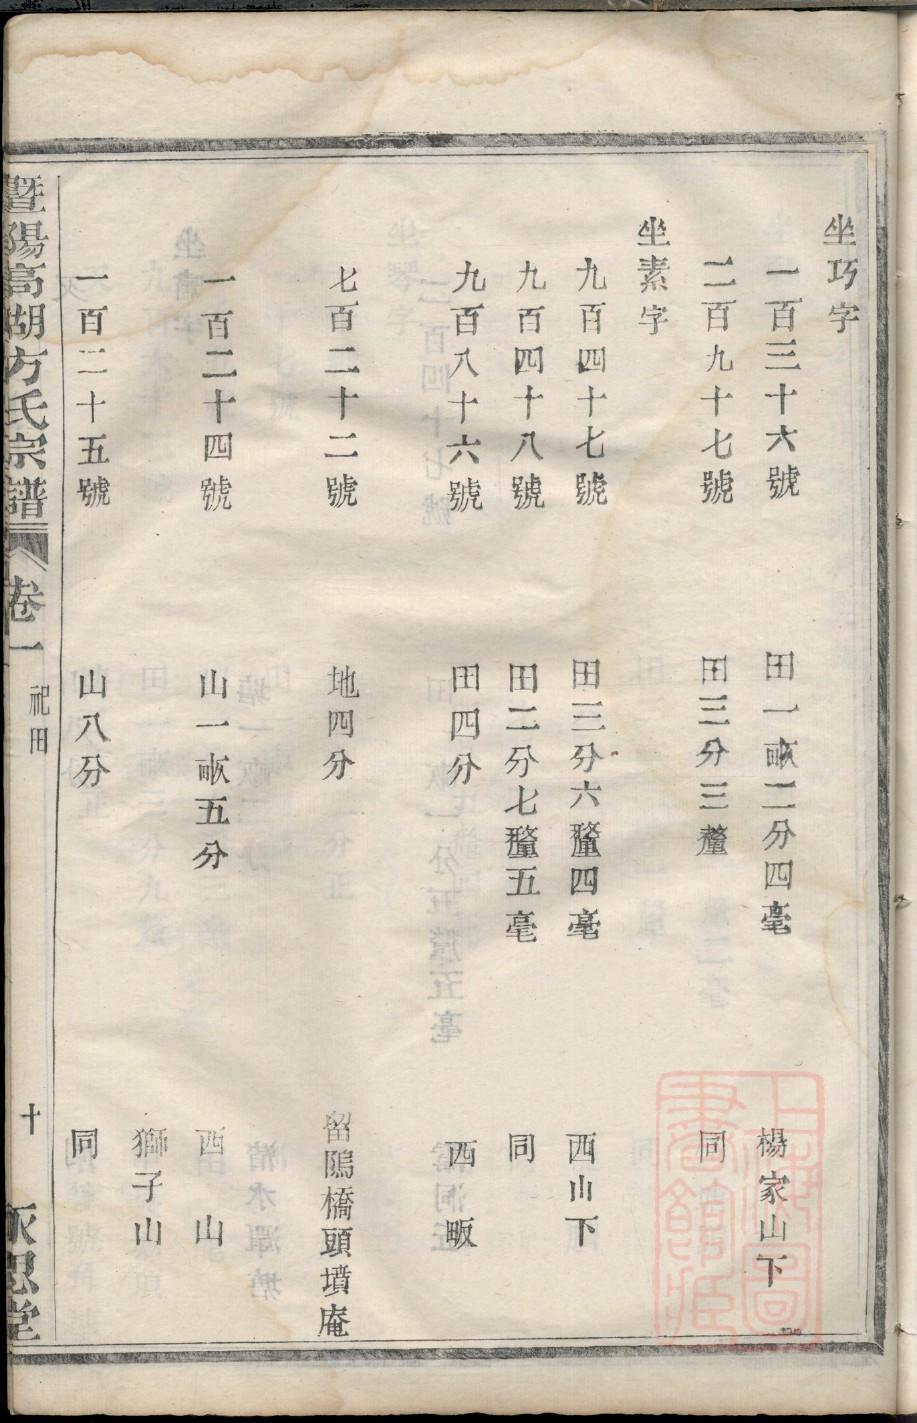 坐巧字
一百三十六號 田一畝二分四毫 楊家山下
二百九十七號 田三分三釐 同
坐素字
九百四十七號 田三分六釐四毫 西山下
九百四十八號 田二分七釐五毫 同
九百八十六號 田四分 西畈
七百二十二號 地四分 留隝橋頭墳庵
一百二十四號 山一畝五分 西山
獅子山
一百二十五號 山八分 同
暨陽高湖方氏宗譜 卷一 祀田 十 永思堂